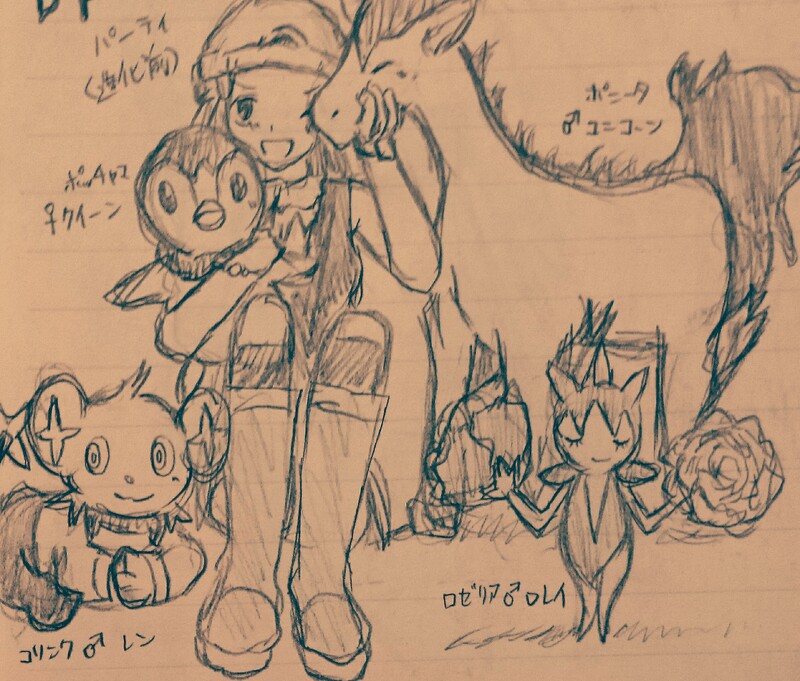 パーティ
(進化前)
ポニータ
♂ユニコーン
ポッチャマ
♀クイーン
ロゼリア♂ロレイ
コリンク♂ レン